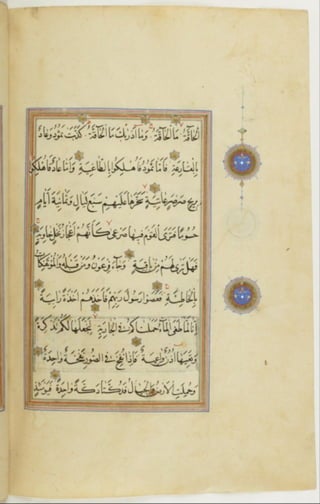 الحاقة ما الحاقة وما ادريك ما الحاقة كذبت ثمود وعاد
بالقارعة فاما ثمود فاهلكوا بالطاغية واما عاد فاهلكوا
بريح صرصر عاتية سخرها عليهم سبع ليال وثمانية ايام
حسوما فترى القوم فيها صرعى كانهم اعجاز نخل خاوية
فهل ترى لهم من باقية وجاء فرعون ومن قبله والمؤتفكات
بالخاطئة فعصوا رسول ربهم فاخذهم اخذة رابية
انا لما طغى الماء حملناكم في الجارية لنجعلها لكم تذكرة
وتعيها اذن واعية فاذا نفخ في الصور نفخة واحدة
وحملت الارض والجبال فدكتا دكة واحدة فيومئذ